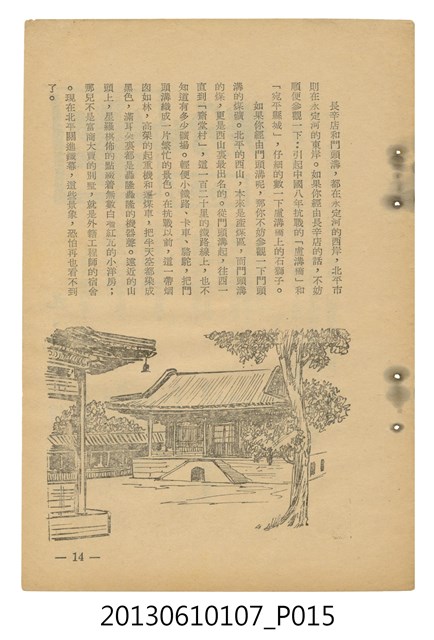 長辛店和門頭溝，都在永定河的西岸，北平市
則在永定河的東岸。如果你經由長辛店的話，不妨
順便參觀一下：引起中國八年抗戰的「盧溝橋」和
「宛平縣城」，仔細的數一下盧溝橋上的石獅子。
如果你經由門頭溝呢，那你不妨參觀一下門頭
溝的煤礦。北平的西山，本來是產煤區，而門頭溝
的煤，更是西山裏最出名的。從門頭溝起，往西一
直到「齋堂村」，這一百二十里的鐵路線上，也不
知道有多少礦場。輕便小鐵路、卡車、駱駝，把門
頭溝織成一片繁忙的景色。在抗戰以前，這一帶烟
囱如林，高架的起重機和運煤車，把半天空都染成
黑色，滿耳朵裏都是轟隆轟隆的機器聲。遠近的山
頭上，星羅棋佈的點綴着無數白墻紅瓦的小洋房；
那兒不是富商大賈的別墅，就是外籍工程師的宿舍
。現在北平關進鐵幕，這些景象，恐怕再也看不到
了。
— 14 —
20130610107_P015